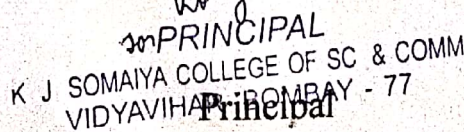 for PRINCIPAL
K J SOMAIYA COLLEGE OF SC & COMM
VIDYAVIHAR BOMBAY - 77
Principal